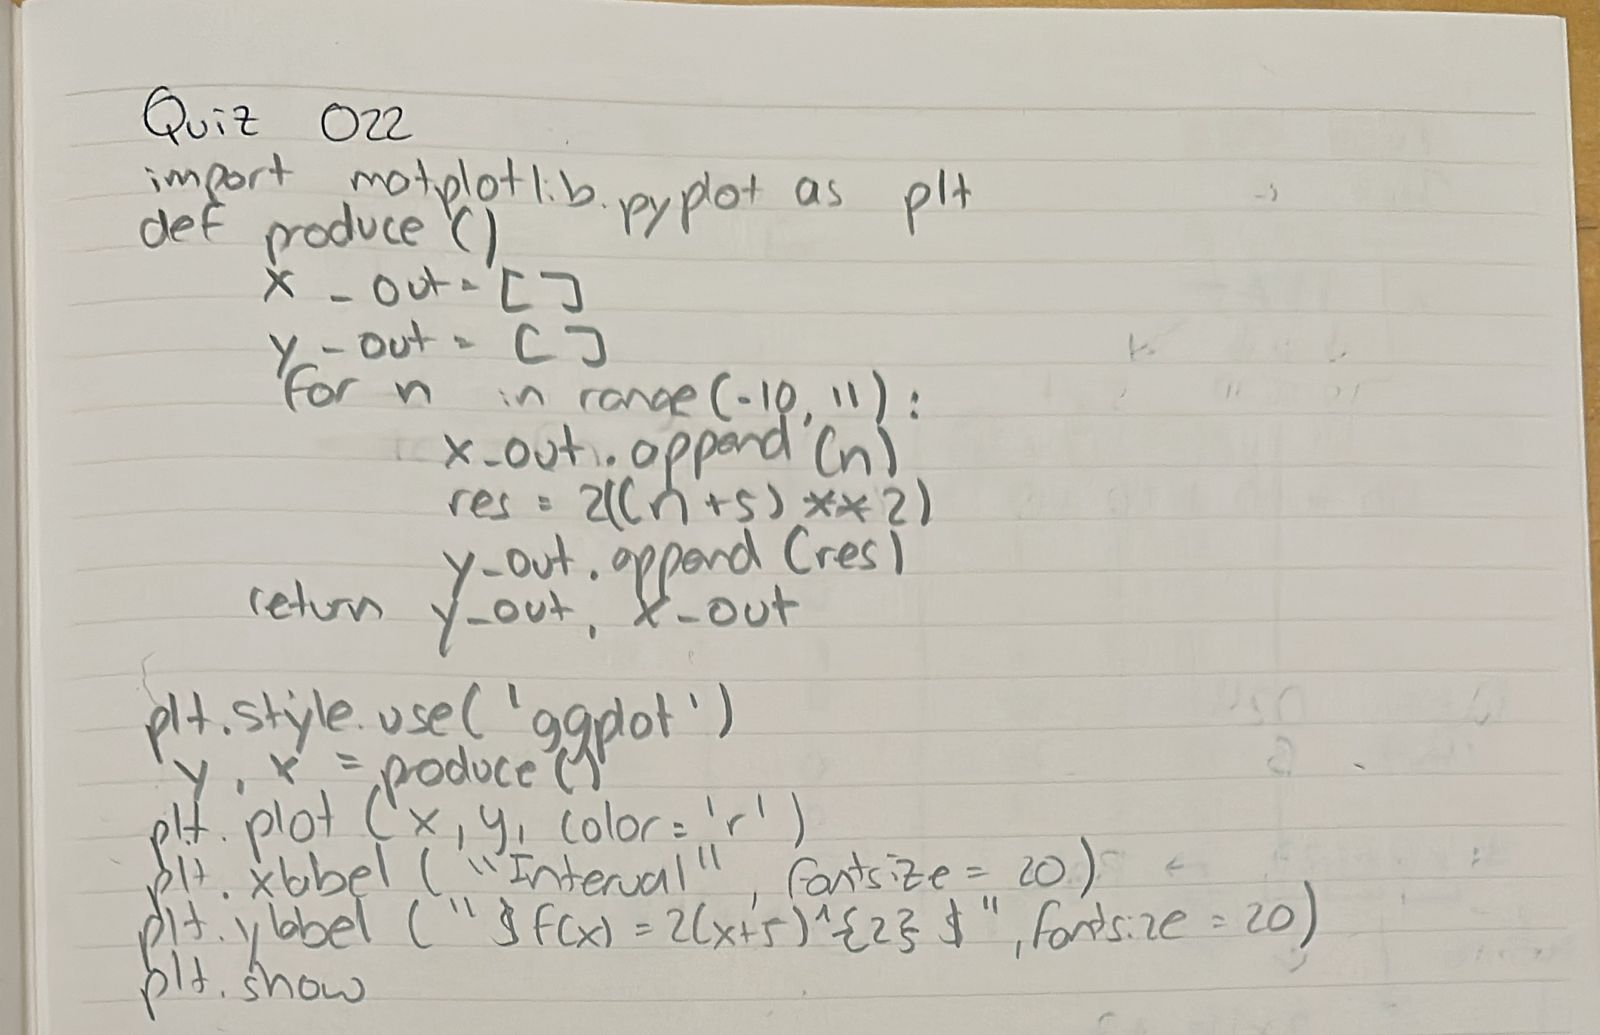 Quiz 022
import matplotlib.pyplot as plt
def produce ()
x_out = []
y_out = []
for n in range(-10, 11):
x_out.append (n)
res = 2((n+5)**2)
y_out.append (res)
return y_out, x_out
plt.style.use('ggplot')
y, x = produce()
plt.plot (x, y, color='r')
plt.xlabel ("Interval", fontsize = 20)
plt.ylabel ("$f(x) = 2(x+5)^{2}$", fontsize = 20)
plt.show